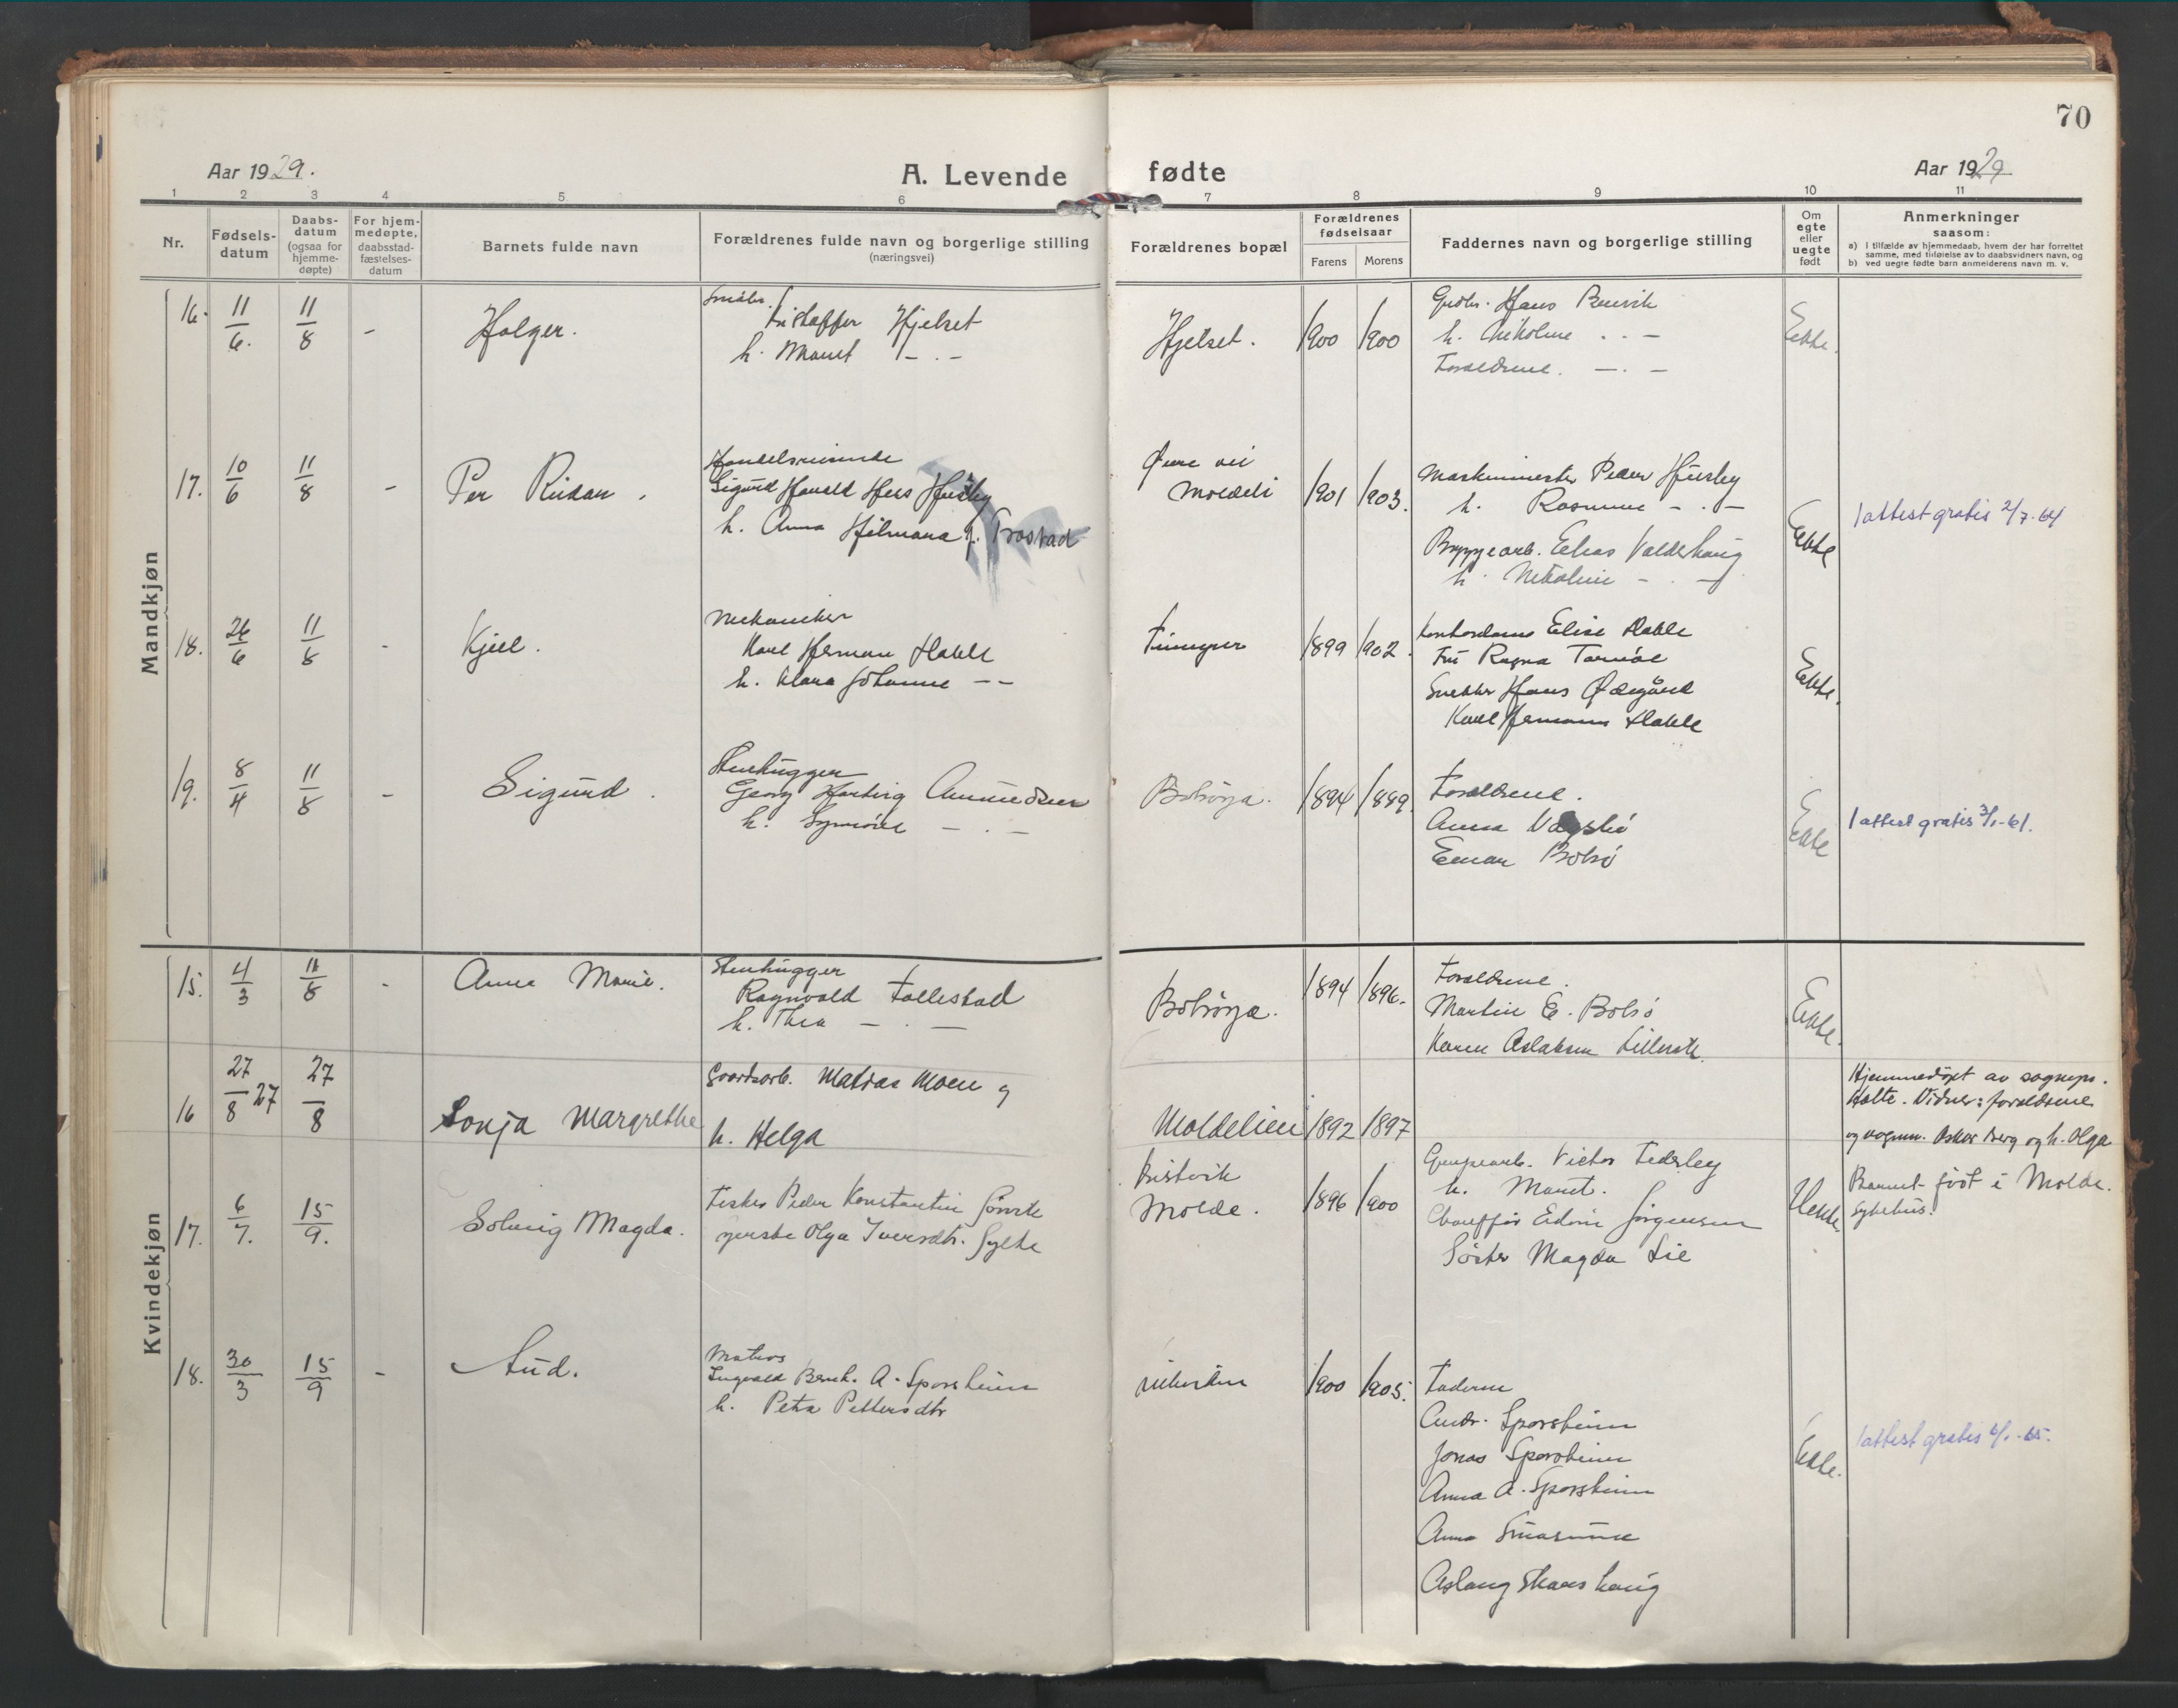 70
Aar 1929.
A. Levende fødte
Aar 1929
1 2 3 4 5 6 7 8 9 10 11
Nr.
Fødselsdatum
Daabsdatum (ogsaa for hjemmedøpte)
For hjemmedøpte, daabsstadfæstelsesdatum
Barnets fulde navn
Forældrenes fulde navn og borgerlige stilling (næringsvei)
Forældrenes bopæl
Forældrenes fødselsaar
Farens Morens
Faddernes navn og borgerlige stilling
Om egte eller uegte født
Anmerkninger saasom:
a) I tilfælde av hjemmedaab, hvem der har forrettet samme, med tilføielse av to daabsvidners navn, og
b) ved uegte fødte barn anmelderens navn m. v.
Mandkjøn
16. 11/6. 11/8 - Holger.
Småbr.
Kristoffer Hjelset
h. Marit - . -
Hjelset. 1900 1900
Grdbr. Hans
h. Nikoline . . -
Foreldrene. - . -
Ekte.
17. 10/6 11/8 - Per Ridar.
Handelsreisende
Sigurd Harald Hess Husby
h. Anna Hilmara f. Trostad
Øvre vei
Moldeli 1901 1903.
Maskinmester Peder Husby
h. Rasmine - . -
Byggearb. Elias Valderhaug
h. Nikoline - . -
Ekte
1 attest gratis 2/7-64
18. 26/6 11/8 - Kjell.
Mekaniker
Karl Herman Hatle
h. Klara Johanne - -
1899 1902.
Kontordame Elise Hatle
Fru Ragna Tornøe
Snekker Hans Ødegård
Karl Hermann Hatle
Ekte.
19. 8/4 11/8 - Sigurd.
Stenhugger
Georg Hartvig Amundsen
h. Synnöve - . -
Bolsöya. 1894 1899.
Foreldrene.
Anna
Einar Bolsö
Ekte
1 attest gratis 3/1-61.
Kvindekjøn
15. 4/3 11/8 - Anna Marie.
Stenhugger
Ragnvald Tallestad
h. Thea - . -
Bolsöya. 1894 1896.
Foreldrene.
Martin E. Bolsö
Karen Aslaksen
Ekte.
16 27/8 27 27/8 Sonja Margrethe
Gaardsarb. Matias Moen og
h. Helga
Moldelien 1892 1897
Hjemmedöpt av sognepr.
Hatte. Vidner: foreldrene
og vognm. Oskar Berg og h. Olga
17. 6/7. 15/9. Solveig Magda.
Fisker Peder Konstantin
Olga Iversdtr. Sylte
Molde. 1896 1900
Victor
h. Marit.
Chaufför Edvin Jörgensen
Söster Magda Lie
Uekte.
Barnet födt i Molde.
Sykehus.
18. 30/3 15/9 - Aud.
Matros
Ingvald Bernh. A. Sporsheim
h. Petra Pettersdtr
1900 1905.
Faderen
Andr. Sporsheim
Jonas Sporsheim
Anna A. Sporsheim
Anna
Aslaug Skarshaug
Ekte.
1 attest gratis 6/1-65.